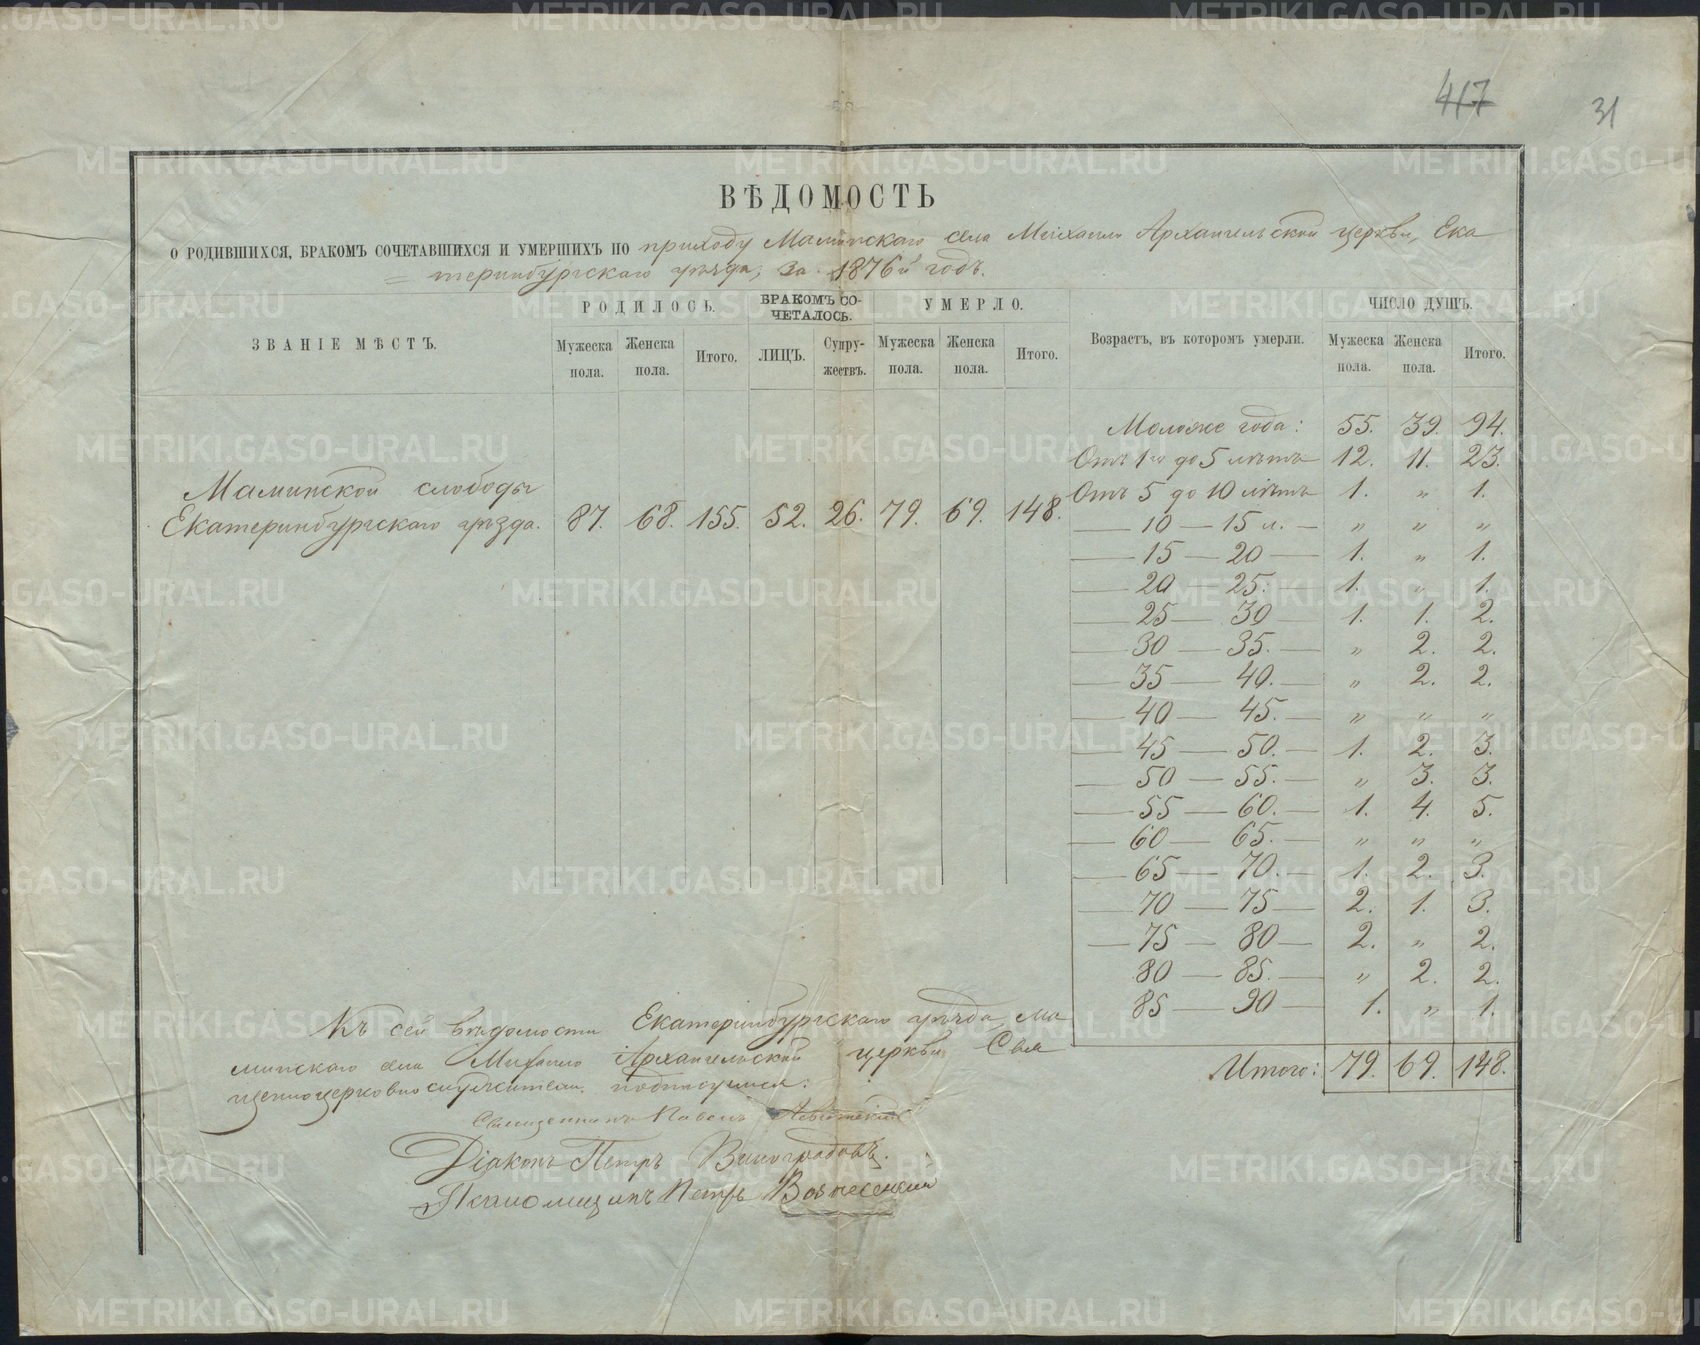 METRIKI.GASO-URAL.RU
417 31
ВѢДОМОСТЬ
О РОДИВШИХСЯ, БРАКОМЪ СОЧЕТАВШИХСЯ И УМЕРШИХЪ ПО приходу Маминскаго села Михаило Архангельской церкви, Ека
= теринбургскаго уѣзда, за 1876й годъ.
ЗВАНІЕ МѢСТЪ. РОДИЛОСЬ. БРАКОМЪ СО-ЧЕТАЛОСЬ. УМЕРЛО. Возрастъ, въ которомъ умерли. ЧИСЛО ДУШЪ.
Мужеска пола. Женска пола. Итого. ЛИЦЪ. Супру-жествъ. Мужеска пола. Женска пола. Итого. Мужеска пола. Женска пола. Итого.
Маминской слободы
Екатеринбургскаго уѣзда. 87. 68. 155. 52. 26. 79. 69. 148.
Моложе года: 55. 39. 94.
Отъ 1го до 5 лѣтъ 12. 11. 23.
Отъ 5 до 10 лѣтъ 1. „ 1.
— 10 — 15 л. — „ „ „
— 15 — 20 — 1. „ 1.
— 20 — 25. 1. „ 1.
— 25 — 30 — 1. 1. 2.
— 30 — 35. — „ 2. 2.
— 35 — 40. — „ 2. 2.
— 40 — 45. — „ „ „
— 45 — 50. — 1. 2. 3.
— 50 — 55. — „ 3. 3.
— 55 — 60. — 1. 4. 5.
— 60 — 65. — „ „ „
— 65 — 70. — 1. 2. 3.
— 70 — 75 — 2. 1. 3.
— 75 — 80 — 2. „ 2.
80 — 85. — „ 2. 2.
85 — 90 — 1. „ 1.
Итого: 79. 69. 148.
Къ сей вѣдомости Екатеринбургскаго уѣзда, Ма
минскаго села Михаило Архангельской церкви Свя
щенноцерковнослужители подписуемся:
Священникъ Павелъ
Діаконъ Петръ Виноградовъ.
Псаломщикъ Петръ Вознесенскій